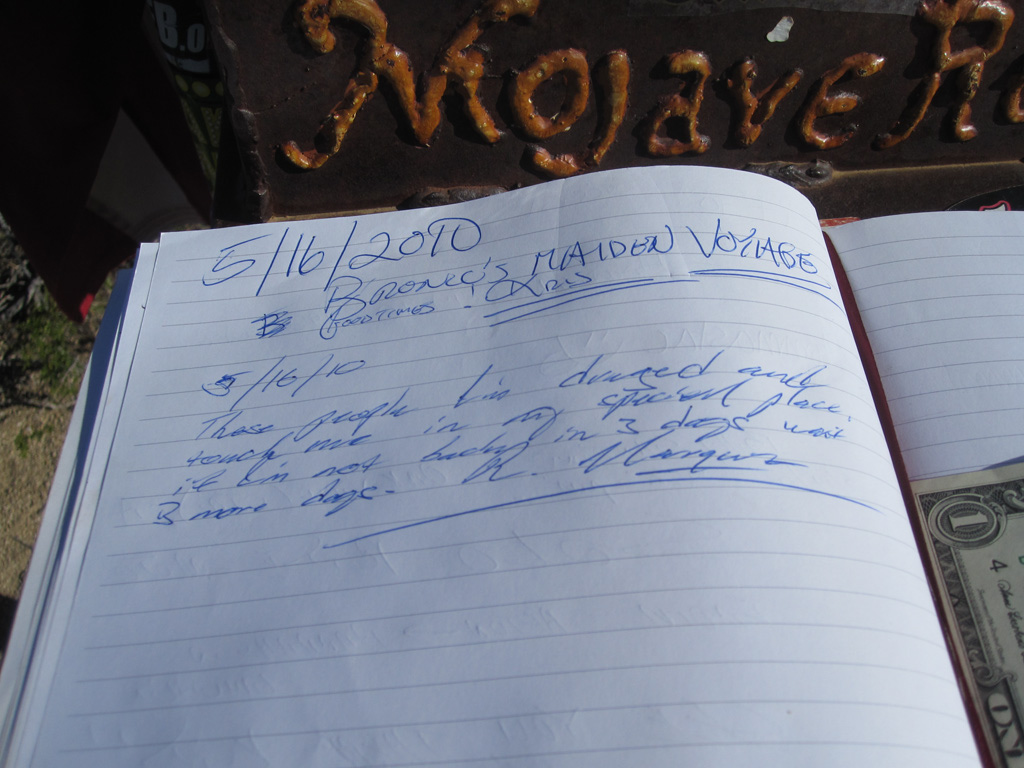 B.o
Mojave R
5/16/2010
BRONCO'S MAIDEN VOYAGE
GOODTIMES! KRIS
5/16/10
These people I'm drugged and
touch me in my special place.
if I'm not back in 3 days wait
3 more days. K. Marquez
1
4
ON